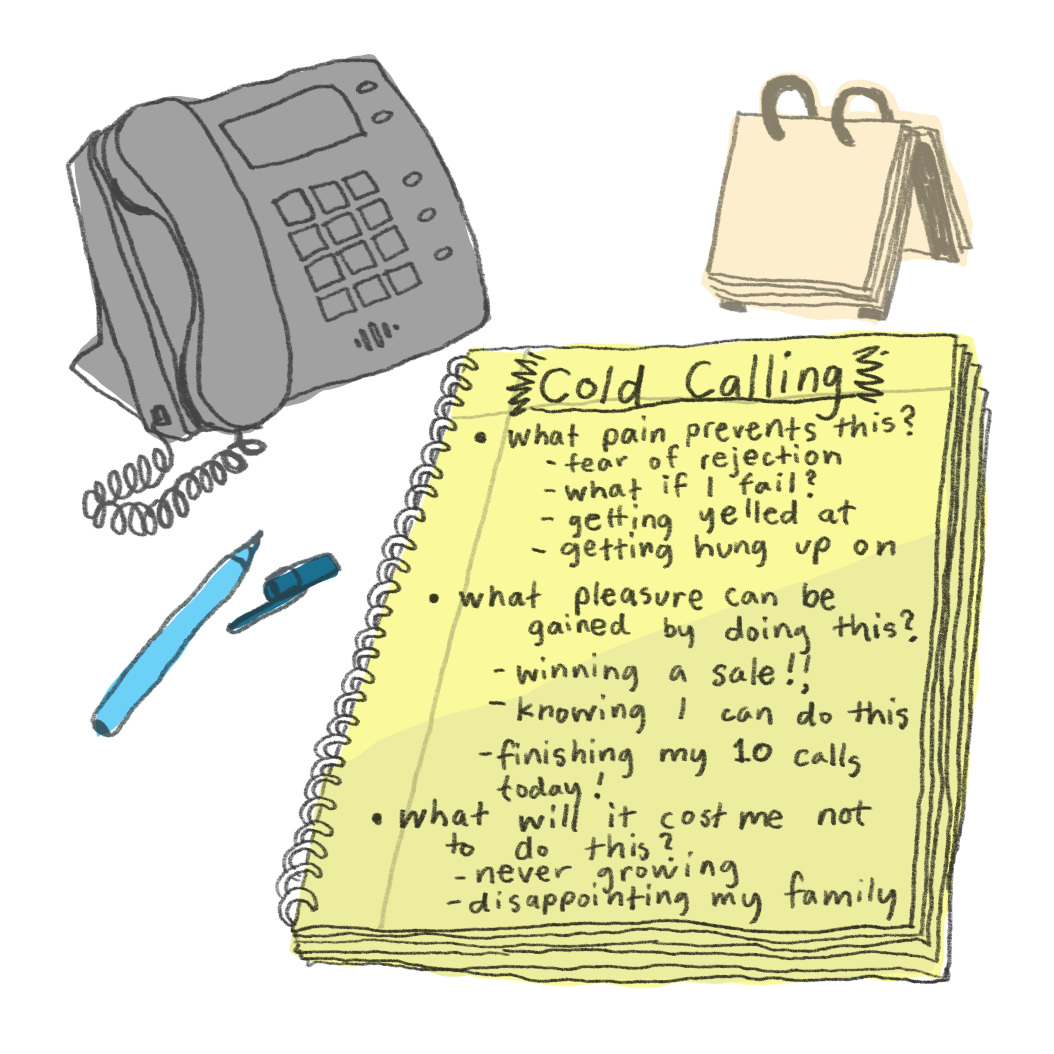 Cold Calling
• what pain prevents this?
- fear of rejection
- what if I fail?
- getting yelled at
- getting hung up on
• what pleasure can be
gained by doing this?
- winning a sale!!
- knowing I can do this
- finishing my 10 calls
today!
• what will it cost me not
to do this?
- never growing
- disappointing my family